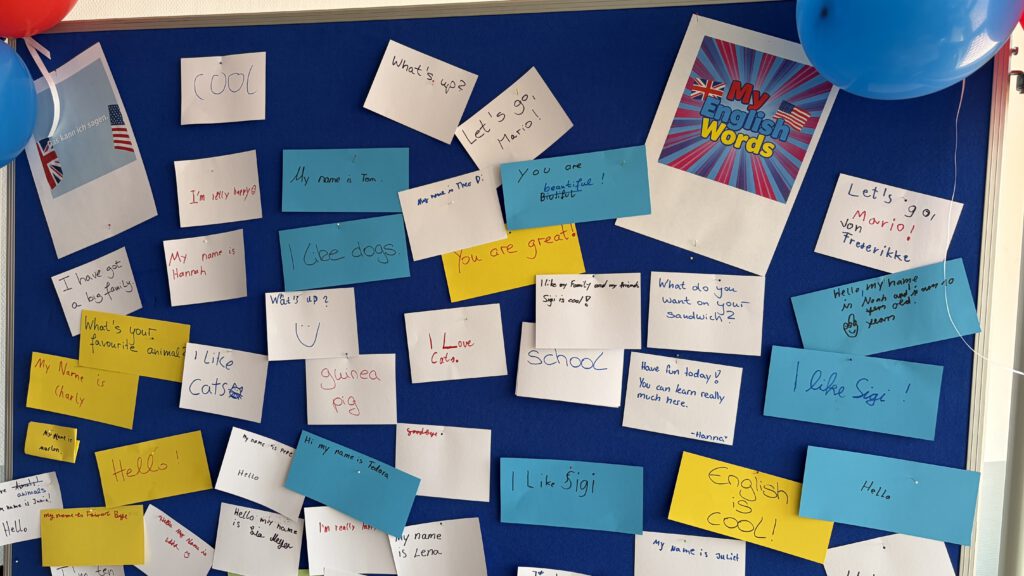 kann ich sagen.
COOL
What's up?
Let's go,
Mario!
My
English
Words
I'm really happy
My name is Tom.
My name is Theo :D
You are
beautiful!
Let's go,
Mario!
von
Frederikke
My name is
Hannah
I like dogs
You are great!
I have got
a big family
What's up?
I like my Family and my friends
Sigi is cool!
What do you
want on your
sandwich?
Hello, my name
What's your
favourite animal?
I Love
Cats.
SCHOOL
My Name is
Charly
I Like
Cats
guinea
pig
Have fun today!
You can learn really
much here.
-Hanna
I like Sigi!
My Name is
Marlon
Hello!
my name is
Hello
Hi my name is Todora
goodbye.
I Like Sigi
English
is
COOL!
Hello
animals
name is
Hello
my name is
Hello my name
is
I'm really
My name
is Lena
My Name is Juliet
I'm ten